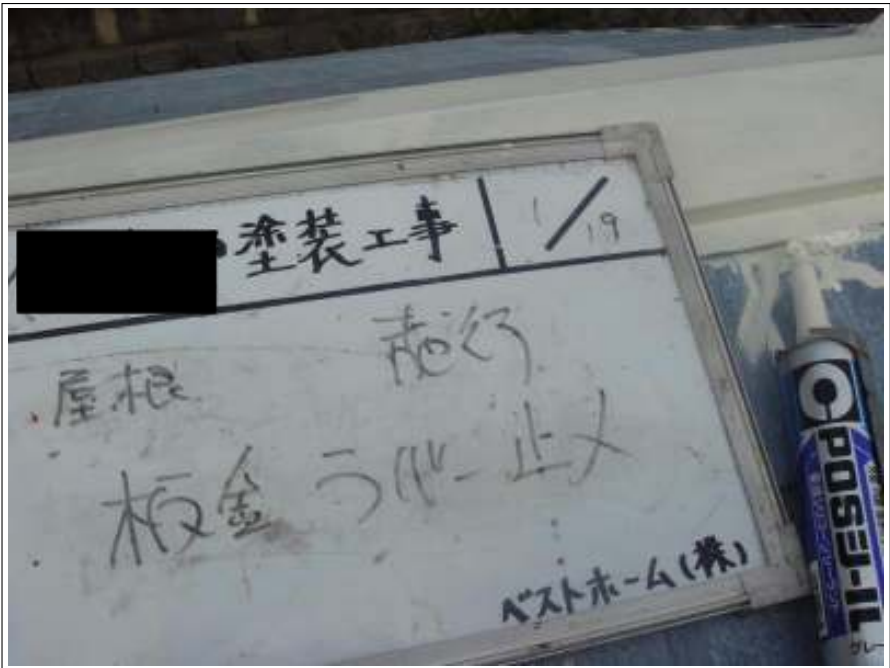 塗装工事 1/19
屋根 施行
板金 ラバー止メ
ベストホーム(株)
POSシール
グレー